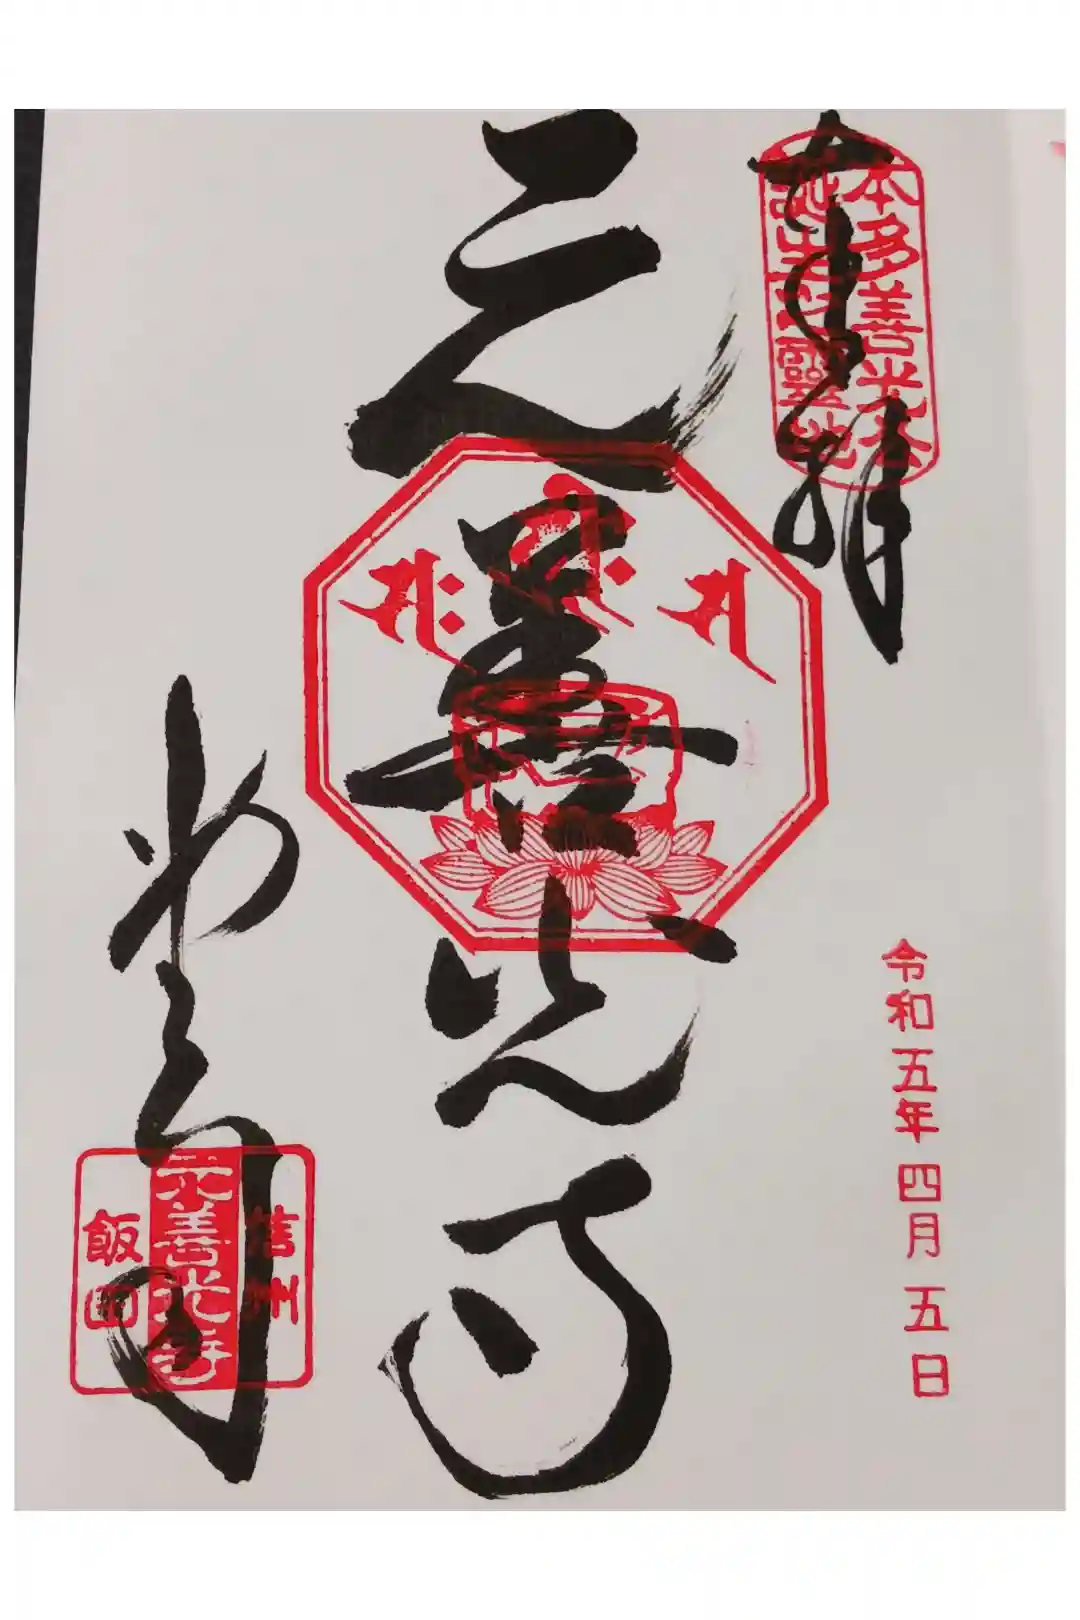 奉拝
本多善光公
誕生之霊地
令和五年四月五日
元善光寺
信州
元善光寺
飯田